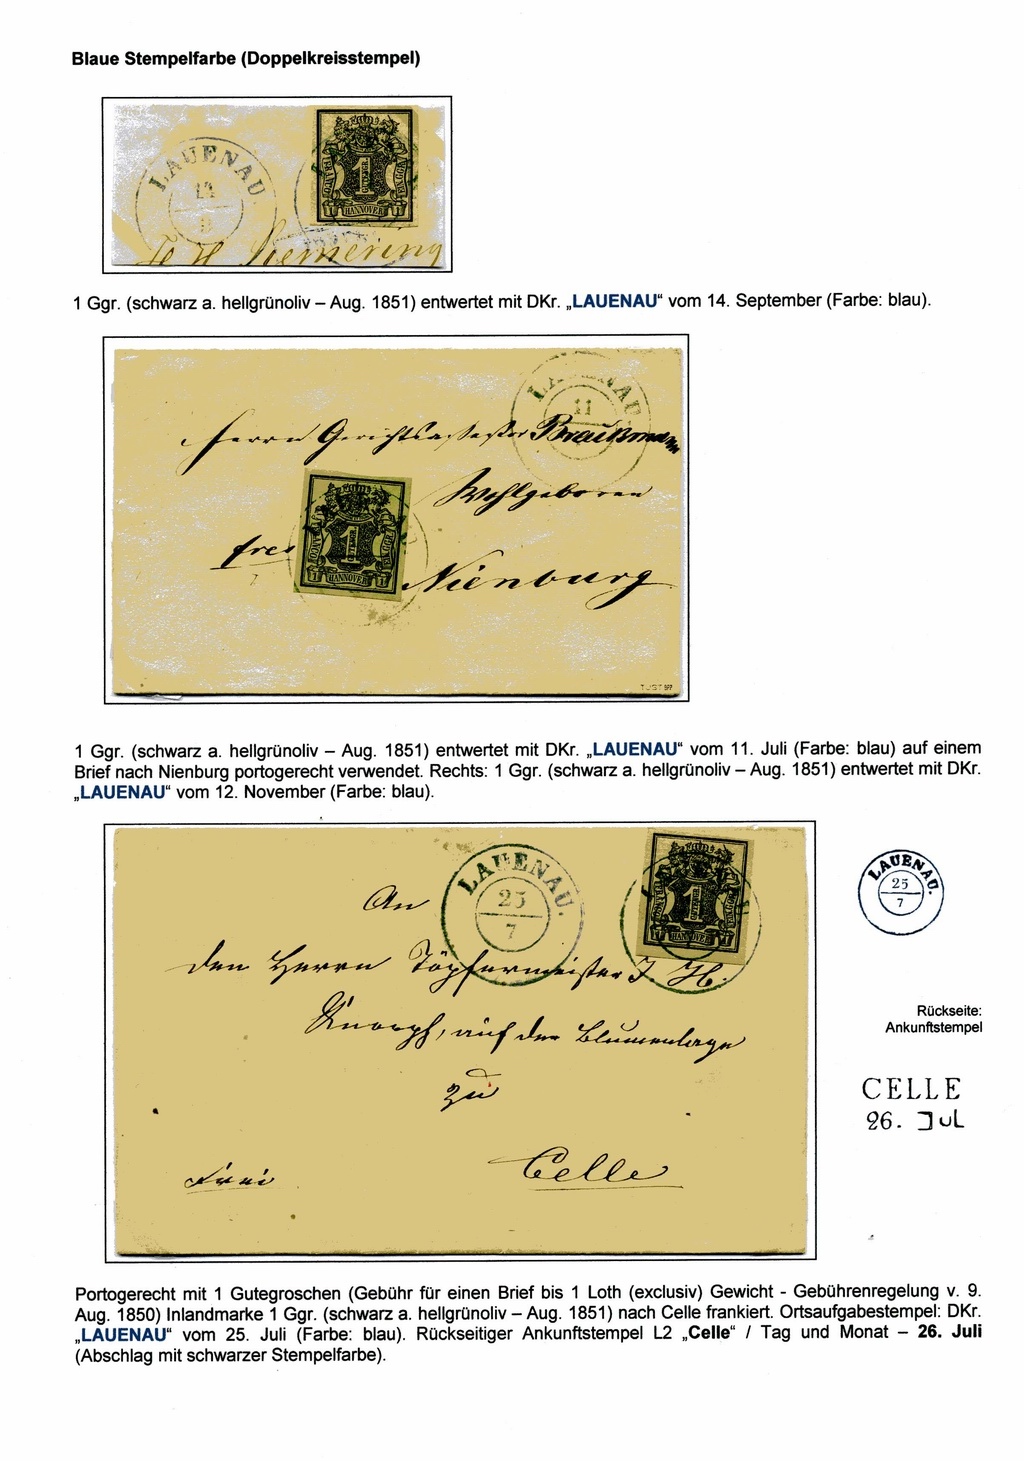 Blaue Stempelfarbe (Doppelkreisstempel)
LAUENAU.
14
9
FRANCO
1
GUTENGR.
EIN GGR.
1 HANNOVER 1
1 Ggr. (schwarz a. hellgrünoliv – Aug. 1851) entwertet mit DKr. „LAUENAU“ vom 14. September (Farbe: blau).
LAUENAU.
11
Herrn Gerichtsassessor
Wohlgeboren
FRANCO
1
GUTENGR.
EIN GGR.
1 HANNOVER 1
7
Nienburg
1 Ggr. (schwarz a. hellgrünoliv – Aug. 1851) entwertet mit DKr. „LAUENAU“ vom 11. Juli (Farbe: blau) auf einem
Brief nach Nienburg portogerecht verwendet. Rechts: 1 Ggr. (schwarz a. hellgrünoliv – Aug. 1851) entwertet mit DKr.
„LAUENAU“ vom 12. November (Farbe: blau).
LAUENAU.
25
7
FRANCO
1
GUTENGR.
EIN GGR.
1 HANNOVER 1
An
den Herrn Töpfermeister J. H.
auf der Blumenlage
zu
Celle
Frei
LAUENAU.
25
7
Rückseite:
Ankunftstempel
CELLE
26. JuL
Portogerecht mit 1 Gutegroschen (Gebühr für einen Brief bis 1 Loth (exclusiv) Gewicht - Gebührenregelung v. 9.
Aug. 1850) Inlandmarke 1 Ggr. (schwarz a. hellgrünoliv – Aug. 1851) nach Celle frankiert. Ortsaufgabestempel: DKr.
„LAUENAU“ vom 25. Juli (Farbe: blau). Rückseitiger Ankunftstempel L2 „Celle“ / Tag und Monat – 26. Juli
(Abschlag mit schwarzer Stempelfarbe).